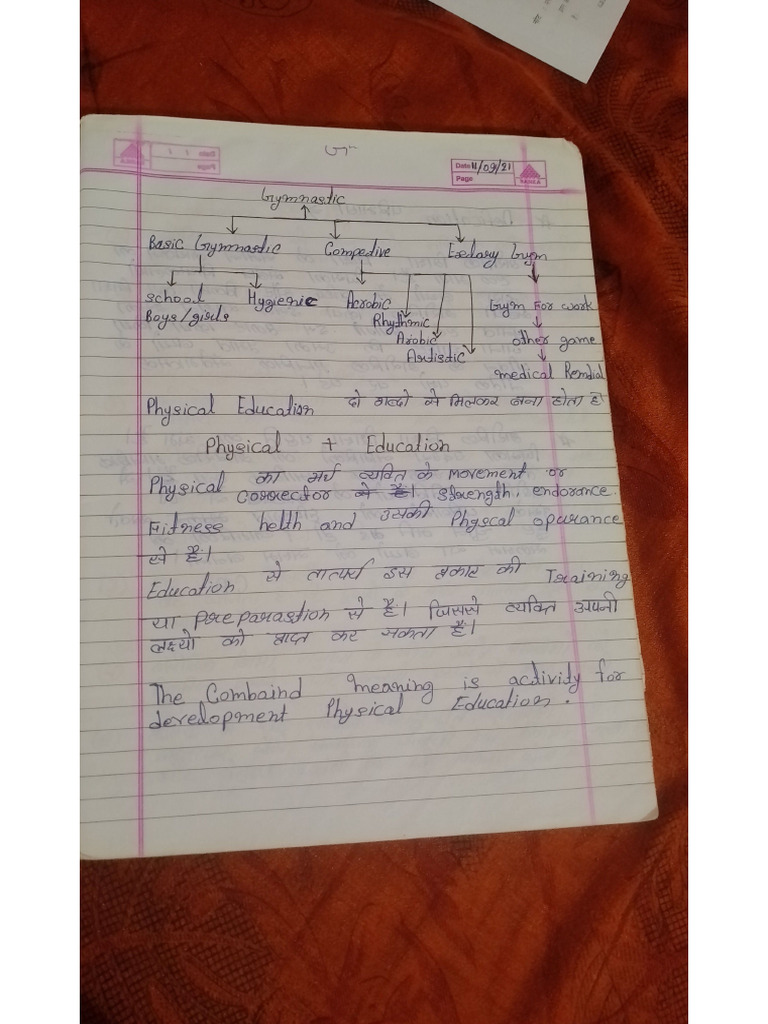 Date 11/09/21
Page
SANKA
Gymnastic
Basic Gymnastic Compedive Exedary Gym
school Hygienic Acrobic Gym For work
Boys/girls Rhythmic
Arobic other game
Artistic
medical Remdial
Physical Education दो शब्दो से मिलकर बना होता है
Physical + Education
Physical का अर्थ व्यक्ति के movement or
corrector से है। strength, endorance
Fitness helth and उसकी Physcal opurance
से है।
Education से तात्पर्य इस प्रकार की Training
या preparastion से है। जिससे व्यक्ति अपनी
लक्ष्यो को प्राप्त कर सकता है।
The Combaind meaning is activity for
development Physical Education.